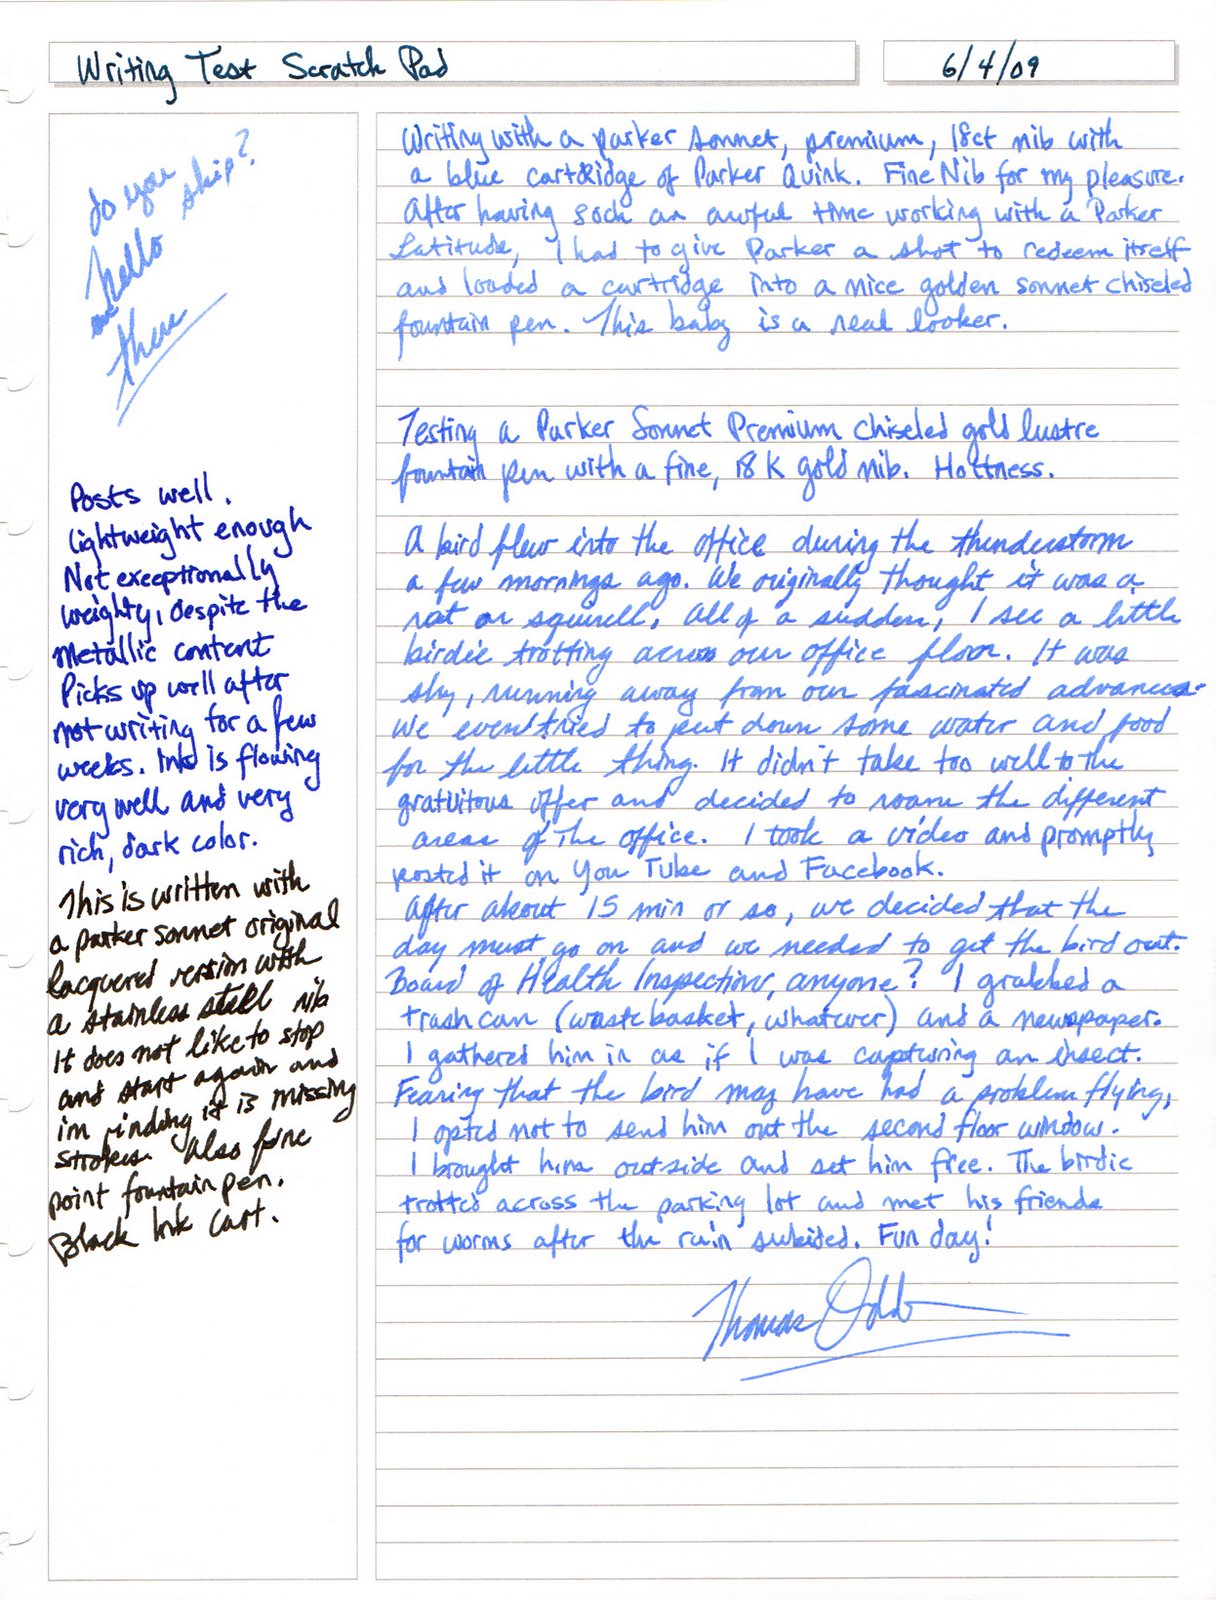 Writing Test Scratch Pad
6/4/09
do you
skip?
hello
there
Posts well.
lightweight enough
Not exceptionally
weighty, despite the
metallic content
Picks up well after
not writing for a few
weeks. Ink is flowing
very well and very
rich, dark color.
This is written with
a parker sonnet original
lacquered version with
a stainless steel nib
It does not like to stop
and start again and
im finding it is missing
strokes. Also fine
point fountain pen.
Black Ink Cart.
Writing with a parker sonnet, premium, 18ct nib with
a blue cartridge of Parker Quink. Fine Nib for my pleasure.
After having such an awful time working with a Parker
Latitude, I had to give Parker a shot to redeem itself
and loaded a cartridge into a nice golden sonnet chiseled
fountain pen. This baby is a real looker.
Testing a Parker Sonnet Premium chiseled gold lustre
fountain pen with a fine, 18 K gold nib. Hottness.
A bird flew into the office during the thunderstorm
a few mornings ago. We originally thought it was a
rat or squirell. All of a sudden, I see a little
birdie trotting across our office floor. It was
shy, running away from our fascinated advances.
We even tried to put down some water and food
for the little thing. It didn't take too well to the
gratuitous offer and decided to roam the different
areas of the office. I took a video and promptly
posted it on You Tube and Facebook.
After about 15 min or so, we decided that the
day must go on and we needed to get the bird out.
Board of Health Inspection, anyone? I grabbed a
trash can (wastebasket, whatever) and a newspaper.
I gathered him in as if I was capturing an insect.
Fearing that the bird may have had a problem flying,
I opted not to send him out the second floor window.
I brought him outside and set him free. The birdie
trotted across the parking lot and met his friends
for worms after the rain subsided. Fun day!
Thomas